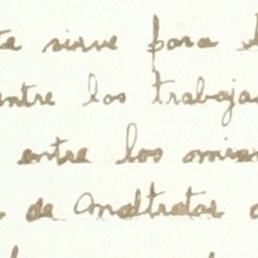 te sirve para
entre los trabaja
entre los mism
de maltratar